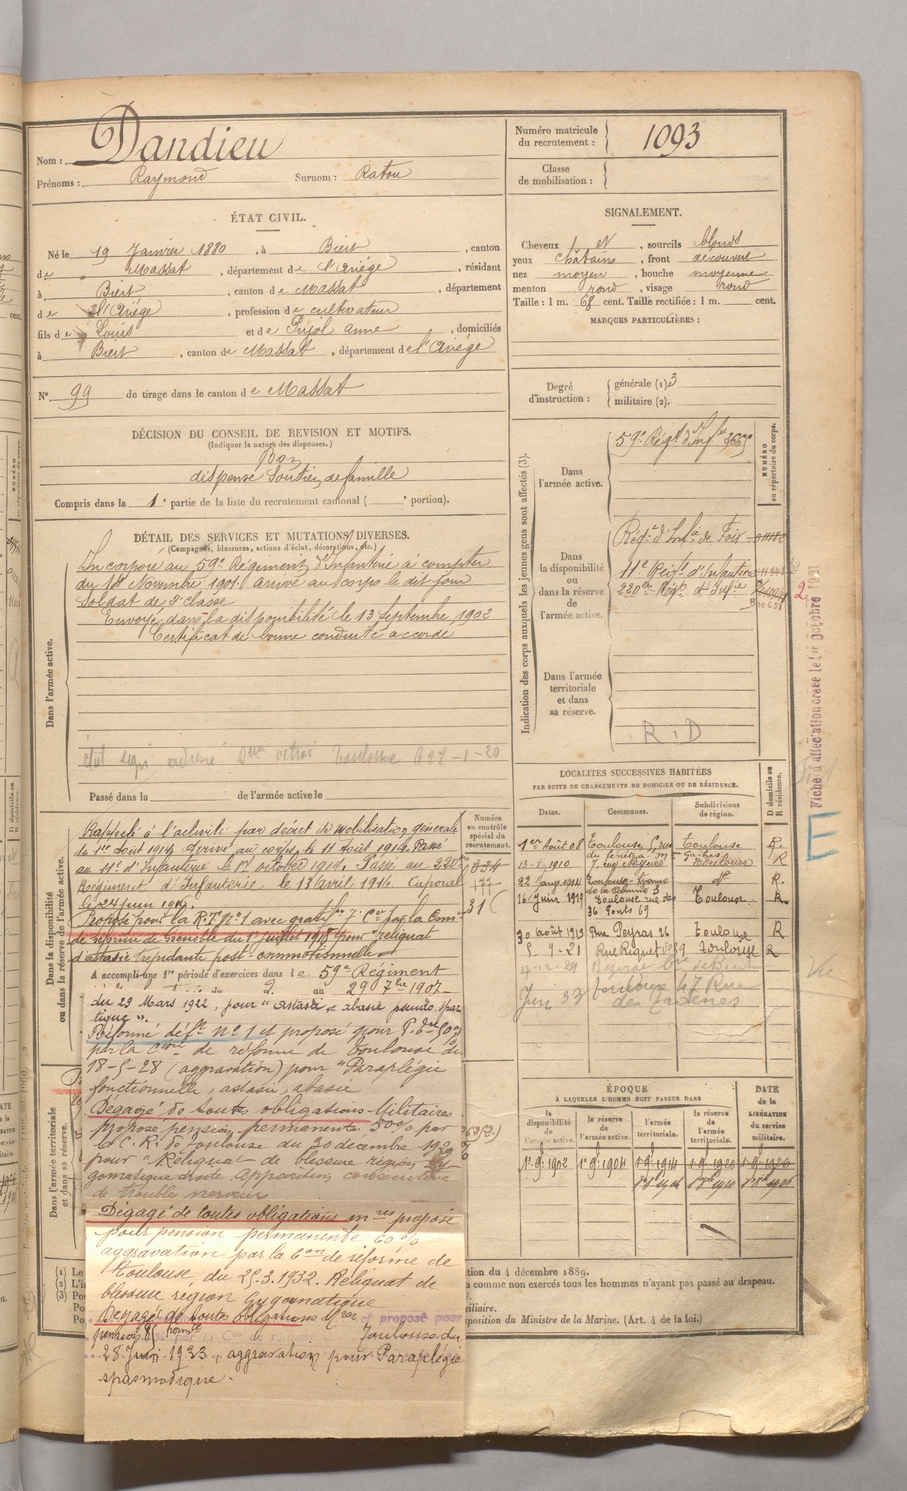 Nom : Dandieu
Prénoms : Raymond Surnom : Ratou
ÉTAT CIVIL.
Né le 19 Janvier 1880, à Biert, canton
de Massat, département de l'Ariège, résidant
à Biert, canton de Massat, département
de l'Ariège, profession de cultivateur
fils de Louis et de Pujol Anne, domiciliés
à Biert, canton de Massat, département de l'Ariège
N° 99 de tirage dans le canton de Massat
DÉCISION DU CONSEIL DE REVISION ET MOTIFS.
(Indiquer la nature des dispenses.)
Bon
dispensé Soutien de famille
Compris dans la 1e partie de la liste du recrutement cantonal ( e portion).
DÉTAIL DES SERVICES ET MUTATIONS DIVERSES.
(Campagnes, blessures, actions d'éclat, décorations, etc.)
Dans l'armée active.
Incorporé au 59e Régiment d'Infanterie à compter
du 14 Novembre 1901 arrivé au corps le dit jour
Soldat de 2e classe
Envoyé dans la disponibilité le 13 Septembre 1902
Certificat de bonne conduite accordé
Toulouse 1-20
Passé dans la de l'armée active le
Numéro au contrôle spécial du recrutement.
Dans la disponibilité ou dans la réserve de l'armée active.
Rappelé à l'activité par décret de mobilisation générale
du 1er août 1914 arrivé au corps le 11 août 1914. Passé
au 11e d'Infanterie le 17 octobre 1914. Passé au 220e
Régiment d'Infanterie le 13 avril 1914 Caporal
le 24 juin 1916.
Proposé pour la R.T. N°1 avec gratif on 7e Cie par la Com on
de réforme de Grenoble du 1er juillet 1918 pour "reliquat
d'astasie trépidante post-commotionnelle"
A accompli une 1re période d'exercices dans le 59e Régiment
au 29 7bre 1907
du 29 Mars 1922, pour "astasie abasie pseudo spas
tique".
Réformé déf t N°1 et proposé pour P. 50%
par la C ion de réforme de Toulouse du
18-5-28 (aggravation) pour "Paraplégie
fonctionnelle, astasie, abasie
Dégagé de toutes obligations Militaires
proposé pension permanente 50% par
la C.R. de Toulouse du 20 décembre 1929
pour "Reliquat de blessure région zy-
gomatique droite. Apparition consécutive
de troubles nerveux
Dégagé de toutes obligations m res proposé
pour pension permanente 60%
aggravation par la C on de réforme de
Toulouse, du 25.3.1932. Reliquat de
blessure région zygomatique
Dégagé de toutes obligations M res et proposé pour
pension Toulouse du
28 Juin 1933, aggravation pour Paraplégie
spasmodique.
Dans l'armée territoriale et dans sa réserve.
Numéro matricule du recrutement : 1093
Classe de mobilisation :
SIGNALEMENT.
Cheveux et, sourcils blonds
yeux châtains, front découvert
nez moyen, bouche moyenne
menton rond, visage rond
Taille : 1 m. 68 cent. Taille rectifiée : 1 m. cent.
MARQUES PARTICULIÈRES :
Degré d'instruction : générale (1) 3
militaire (2).
Indication des corps auxquels les jeunes gens sont affectés (3).
NUMÉRO au répertoire du corps.
Dans l'armée active.
59e Régt d'Inf ie
Dans la disponibilité ou dans la réserve de l'armée active.
Rég t d'Inf ie de Foix
11e Rég t d'Infanterie
220e Rég t d'Inf ie
Dans l'armée territoriale et dans sa réserve.
R.D
Fiche d'affectation créée le 1er Octobre 1921
E
LOCALITÉS SUCCESSIVES HABITÉES
PAR SUITE DE CHANGEMENTS DE DOMICILE OU DE RÉSIDENCE.
Dates. Communes. Subdivisions de région. D domicile ou R résidence.
1er Août 08 Toulouse, rue Toulouse R.
13-1-1910 R
22 Janv 1914 Toulouse d° R.
16 Juin 1919 Toulouse rue des Toulouse R
36 Ponts 69
30 août 1919 Rue Peyras 26 Toulouse R
5-9-21 Rue Riquet n°39 Toulouse R
Juin 33 Toulouse 47 Rue
ÉPOQUE
À LAQUELLE L'HOMME DOIT PASSER DANS
la disponibilité de l'armée active. la réserve de l'armée active. l'armée territoriale. la réserve de l'armée territoriale.
DATE de la LIBÉRATION du service militaire.
1er 9bre 1902 1er 9bre 1904 1er 9bre 1914 1er 9bre 1920 1er 9bre 1926
(1) Le
(2) L'i
(3) Pou
tion du 4 décembre 1889.
comme non exercés tous les hommes n'ayant pas passé au drapeau.
iliaire.
position du Ministre de la Marine. (Art. 4 de la loi.)